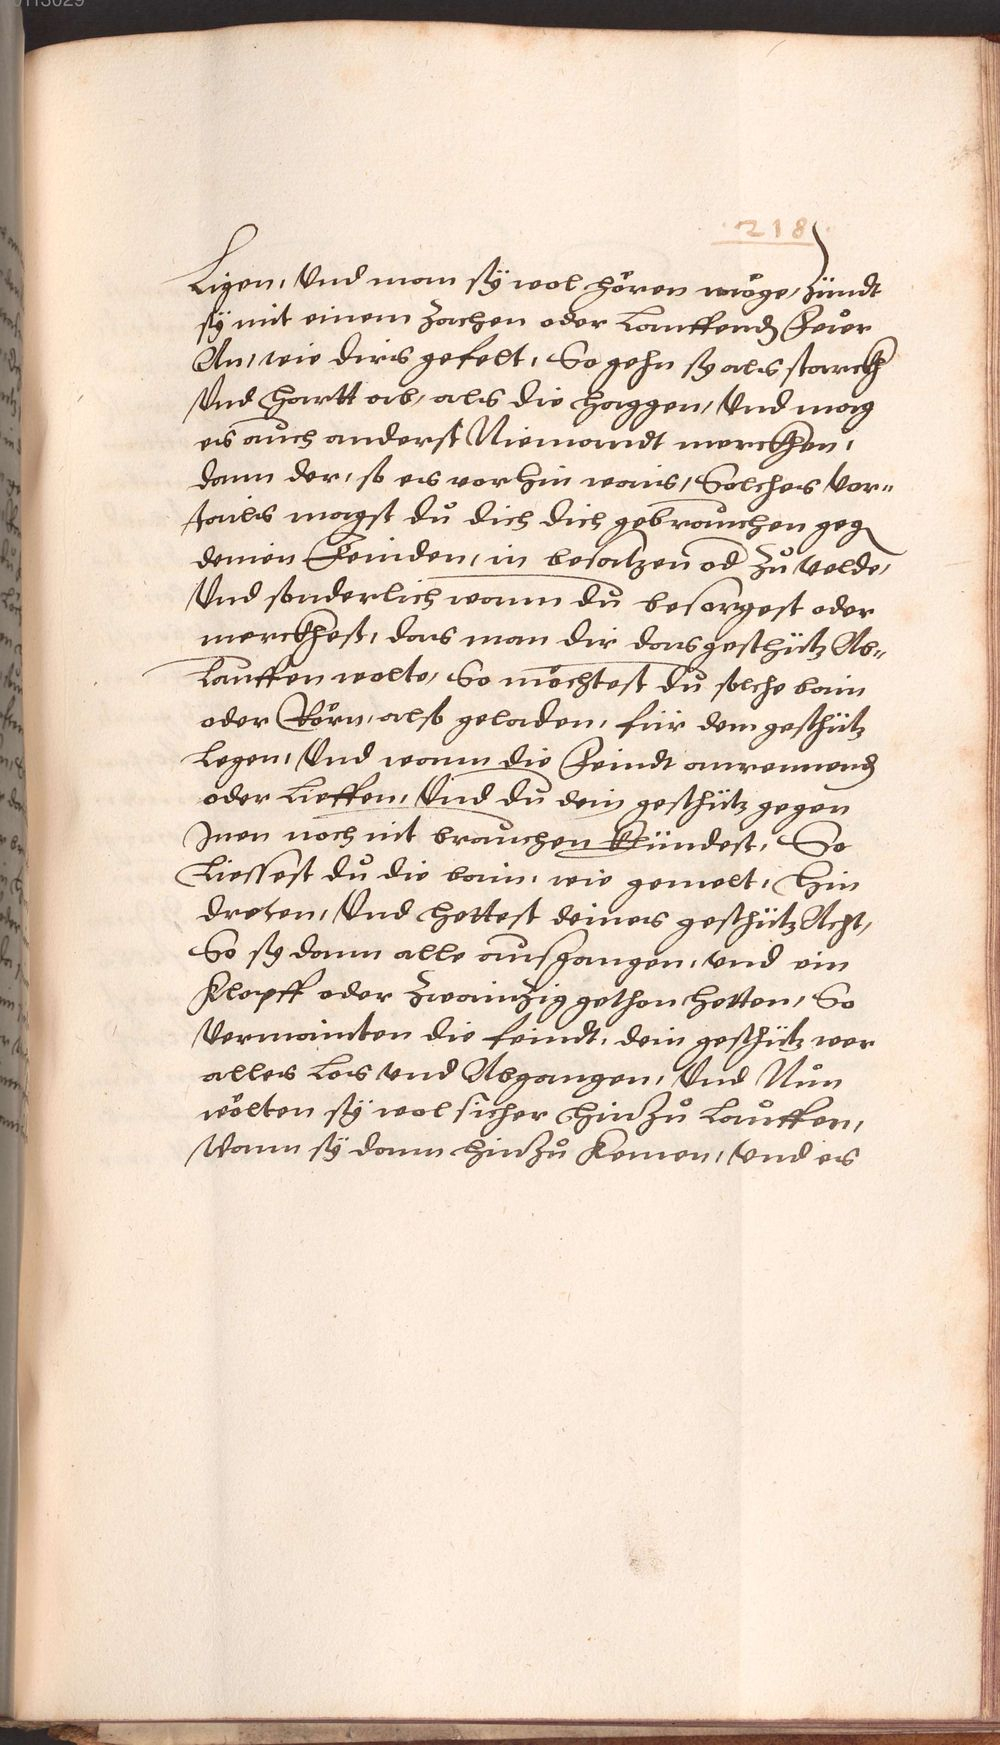 218
Ligen, Vnd man sÿ wol hören möge, zündt
sÿ mit einem zachen oder Lauffend Feŭer
An, wie dirs gefelt, So gehn sy als starckh
Vnd hartt ab, als die haggen, Vnd mag
es auch anderst Niemandt merckhen,
dann der, so es vorhin wais, Solches Vor=
tails magst dŭ dich dich gebraŭchen geg
deinen Feinden, in besatzen od zŭ velde,
Vnd sonderlich wann dŭ besorgest oder
merckhest, das man dir das geschütz Ab=
lauffen wolte, So möchtest dŭ solche bain
oder Rörn, also geladen, für dem geschütz
Legen, Vnd wann die Feindt anrennend
oder Lieffen, Vnd dŭ dein geschütz gegen
Inen noch nit braŭchen Kündest, So
Liessest dŭ die bain, wie gemelt, hin
dreten, Vnd hettest deines geschütz Acht,
So sy dann alle aŭsgangen, vnd ein
Klopff oder Zwainzig gethon hetten, So
vermainten die feindt, dein geschütz wer
alles Los vnd Abgangen, Vnd Nŭn
wölten sÿ wol sicher hinzŭ Laŭffen,
Wann sÿ dann hinzŭ Kemen, Vnd es